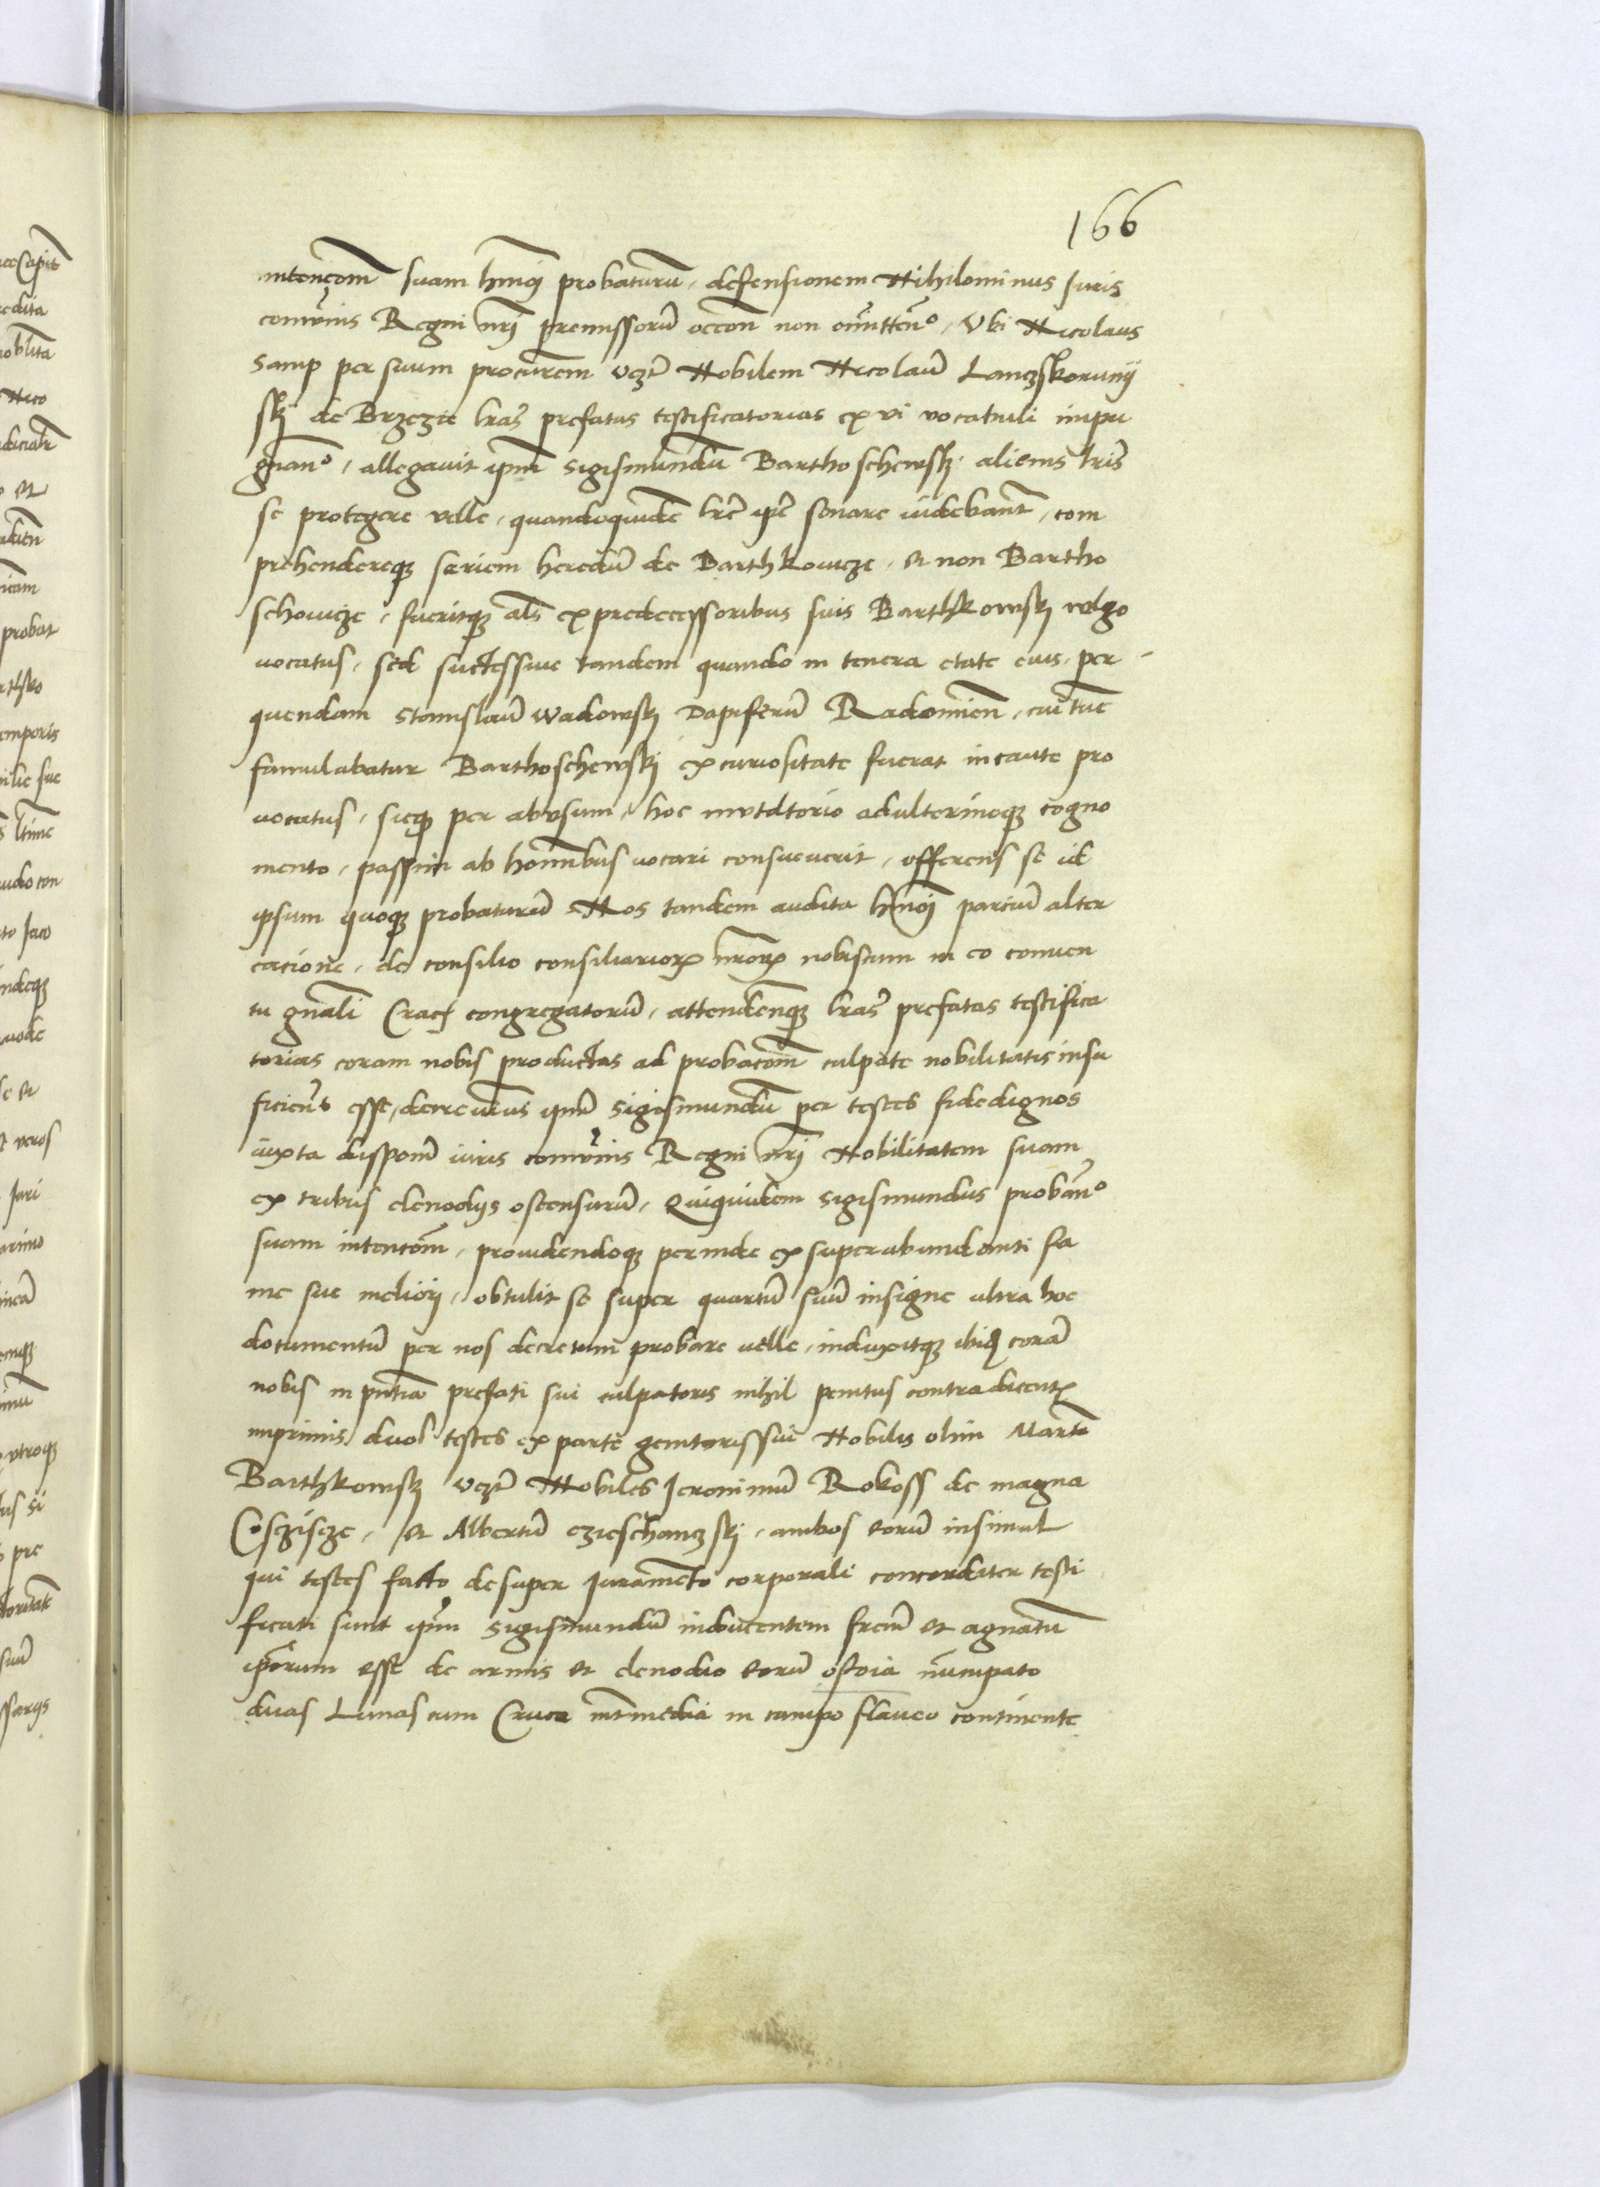 166
intencōm suam hmōi probaturū, defensionem Nihilominus Juris
com̄unis Regni nr̄i premissorū occōn non omittēn°, Vbi Nicolaus
Samp per suum procur̄em vcz̄t Nobilem Nicolaū Lanczskoruny
skj de Brzezie lrās prefatas testificatorias ex vi vocabuli impu
gnān°, allegauit ip̄m Sigismundū Barthoschewskj alienis lrīs
se protegere velle, quandoquidē lrē ip̄e sonare uidebant̄, com
prehendereqȝ seriem heredū de Barthkowicze, et non Bartho
schowicze, fueritqȝ als̄ ex predecessoribus suis Barthkowskj volgo
uocatus, sed successiue tandem quando in tenera etate eius, per
quendam Stanislaū Wadowskj Dapiferū Radomien̄, cui tūc
famulabatur Barthoschewskj ex curiositate fuerat incaute pro
uocatus, sicqȝ per abusum, hoc adulterinoqȝ cogno
mento, passim ab hominībus uocari consueuerit, offerens se id
ipsum quoqȝ probaturū Nos tandem audita hmōi partiū alter
catione, de consilio consiliarioꝝ nr̄oꝝ nobiscum in eo conuen
tu gn̄ali Crac̄ congregatorū, attendēnqȝ lrās prefatas testifica
torias coram nobis productas ad probacōm culpate nobilitatis insu
ficiēns esse, decreuimus ip̄m Sigismundū per testes fidedignos
iuxta disponem̄ iuris com̄unis Regni nr̄i Nobilitatem suam
ex tribus clenodijs ostensurū, Quiquidem Sigismundus probān°
suam intentōm, prouidendoqȝ perinde ex superabundanti fa
me sue meliori, obtulit se super quartū suū insigne ultra hoc
documentū per nos decretum probare uelle, induxitqȝ ibiꝺ corā
nobis in pn̄tia prefati sui culpatoris nihil penitus contradicentꝭ
inprimis duos testes ex parte genitoris sui Nobilis olim Martī
Barthkowskj vcz̄t Nobiles Jeronimū Rokoss de magna
Coszisze, et Albertū Czieschanczskj, ambos eorū insimul
qui testes facto desuper Juramēto corporali concorditer testi
ficati sunt ip̄m Sigismundū inducentem frēm et agnatū
ip̄orum esse de armis et clenodio eorū ostoia nūncupato
duas Lunas cum Cruce int̄media in campo flaueo continente